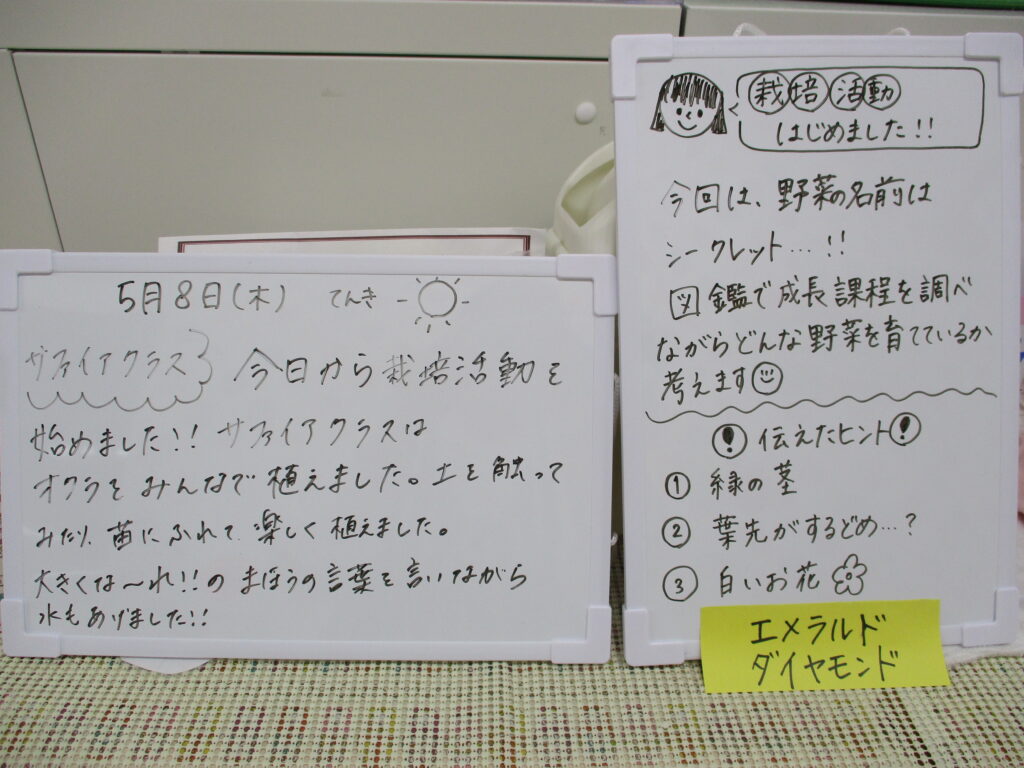 5月8日(木) てんき
サファイアクラス 今日から栽培活動を
始めました!! サファイアクラスは
オクラをみんなで植えました。土を触って
みたり、苗にふれて、楽しく植えました。
大きくな〜れ!!のまほうの言葉を言いながら
水もあげました!!
栽培活動
はじめました!!
今回は、野菜の名前は
シークレット…!!
図鑑で成長課程を調べ
ながらどんな野菜を育てているか
考えます
伝えたヒント
① 緑の茎
② 葉先がするどめ…?
③ 白いお花
エメラルド
ダイヤモンド